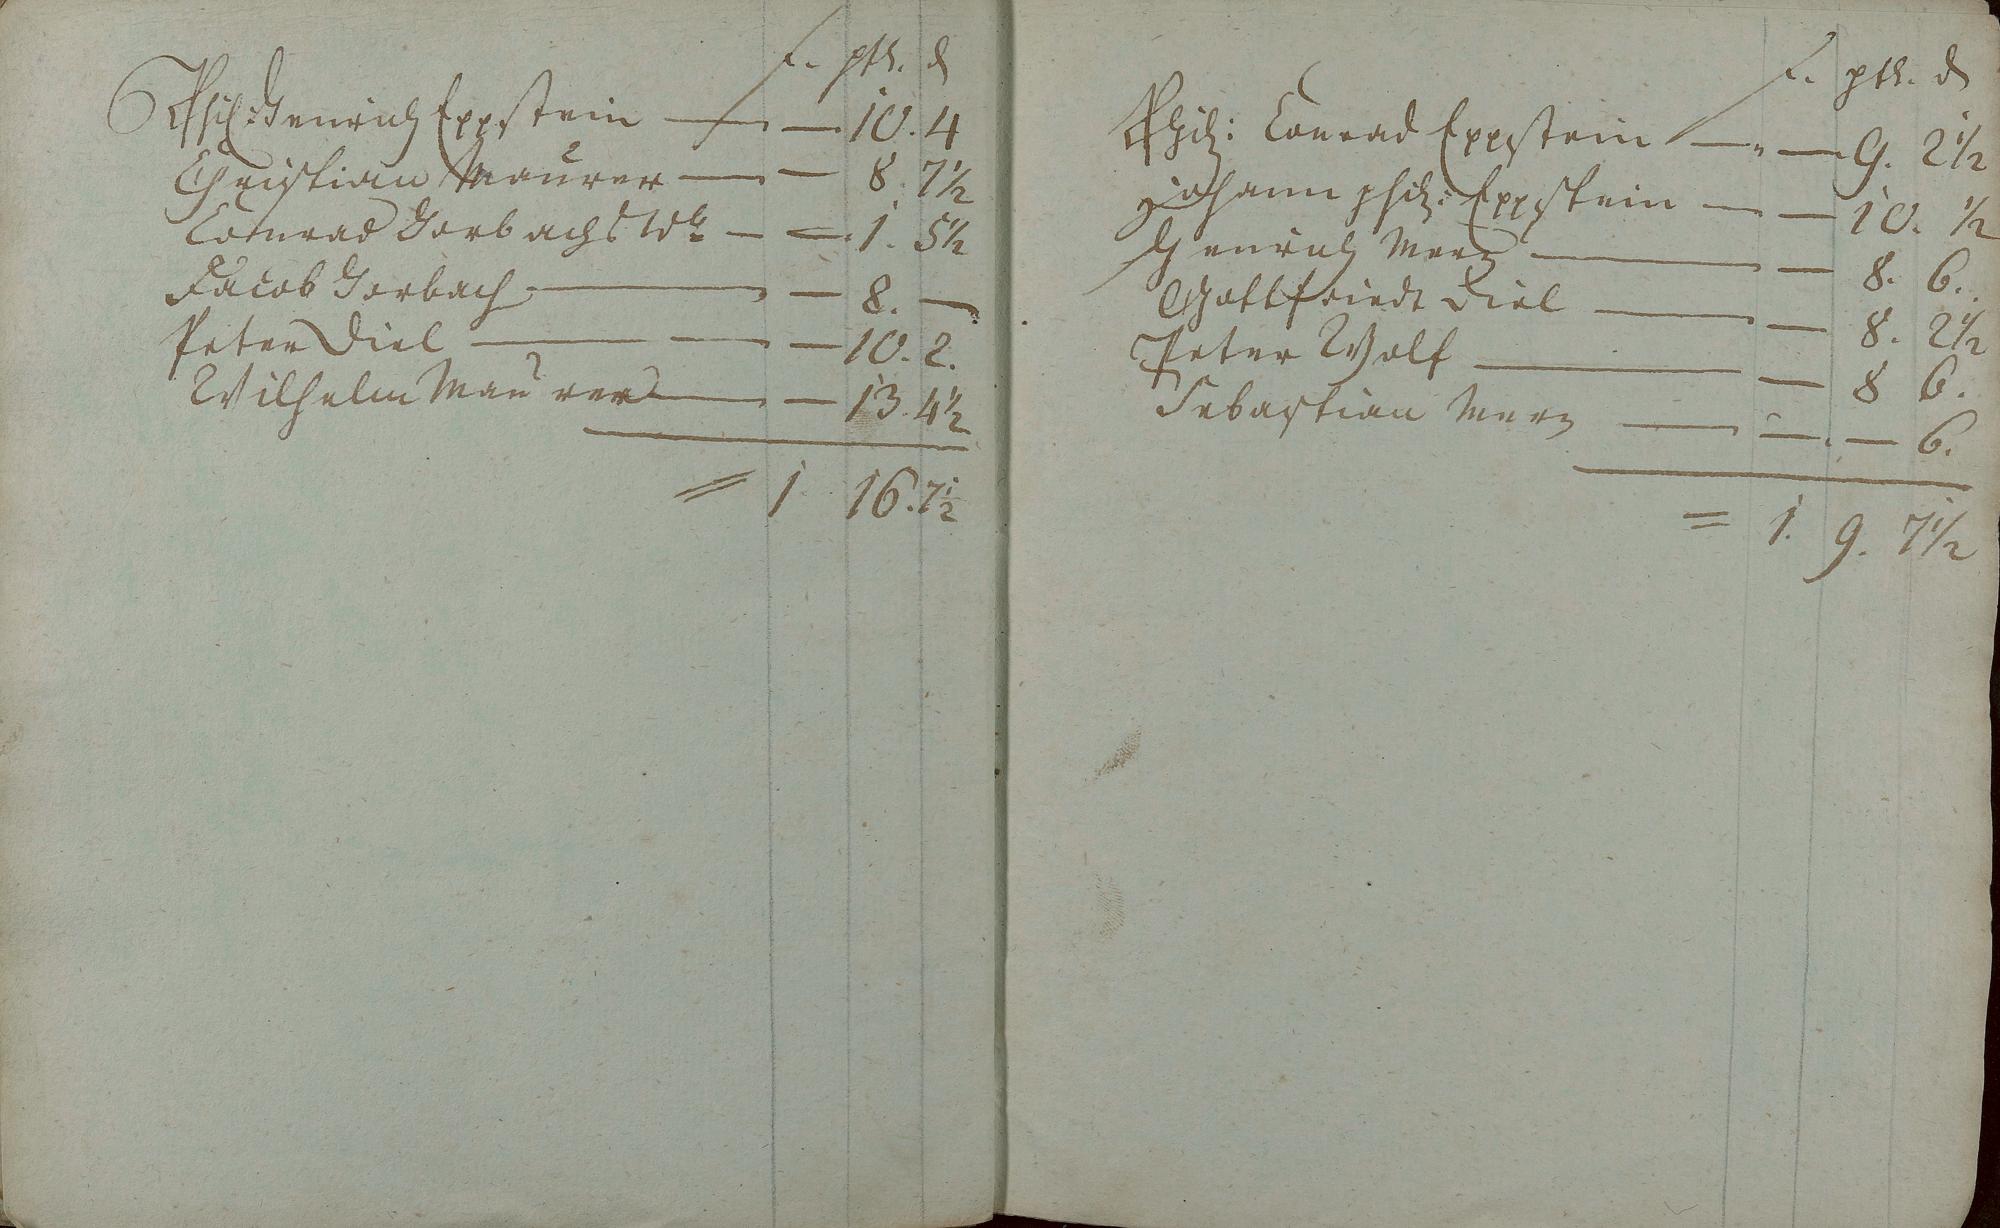 f. pth. d
Phil: Henrich Eppstein — — 10. 4
Christian Maurer — — 8. 7½
Conrad Gerbachs Wb — — 1. 5½
Jacob Gerbach — — 8. —
Peter Diel — — — 10. 2.
Wilhelm Maurer — — 13. 4½
= 1. 16. 7½
f. pth. d
Phil: Conrad Eppstein — — 9. 2½
Johann phil: Eppstein — — 10. ½
Henrich Merz — — 8. 6.
Gottfriedt Diel — — 8. 2½
Peter Wolf — — 8 6.
Sebastian Merz — — — 6.
= 1. 9. 7½